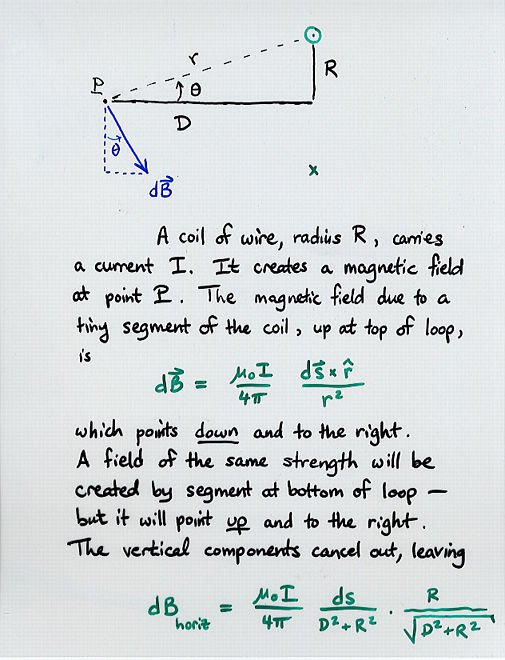 r
R
P
θ
D
θ
dB⃗
A coil of wire, radius R, carries
a current I. It creates a magnetic field
at point P. The magnetic field due to a
tiny segment of the coil, up at top of loop,
is
dB⃗ = μ₀I/4π ds⃗ × r̂/r²
which points down and to the right.
A field of the same strength will be
created by segment at bottom of loop —
but it will point up and to the right.
The vertical components cancel out, leaving
dB horiz = μ₀I/4π ds/D²+R² · R/√D²+R²